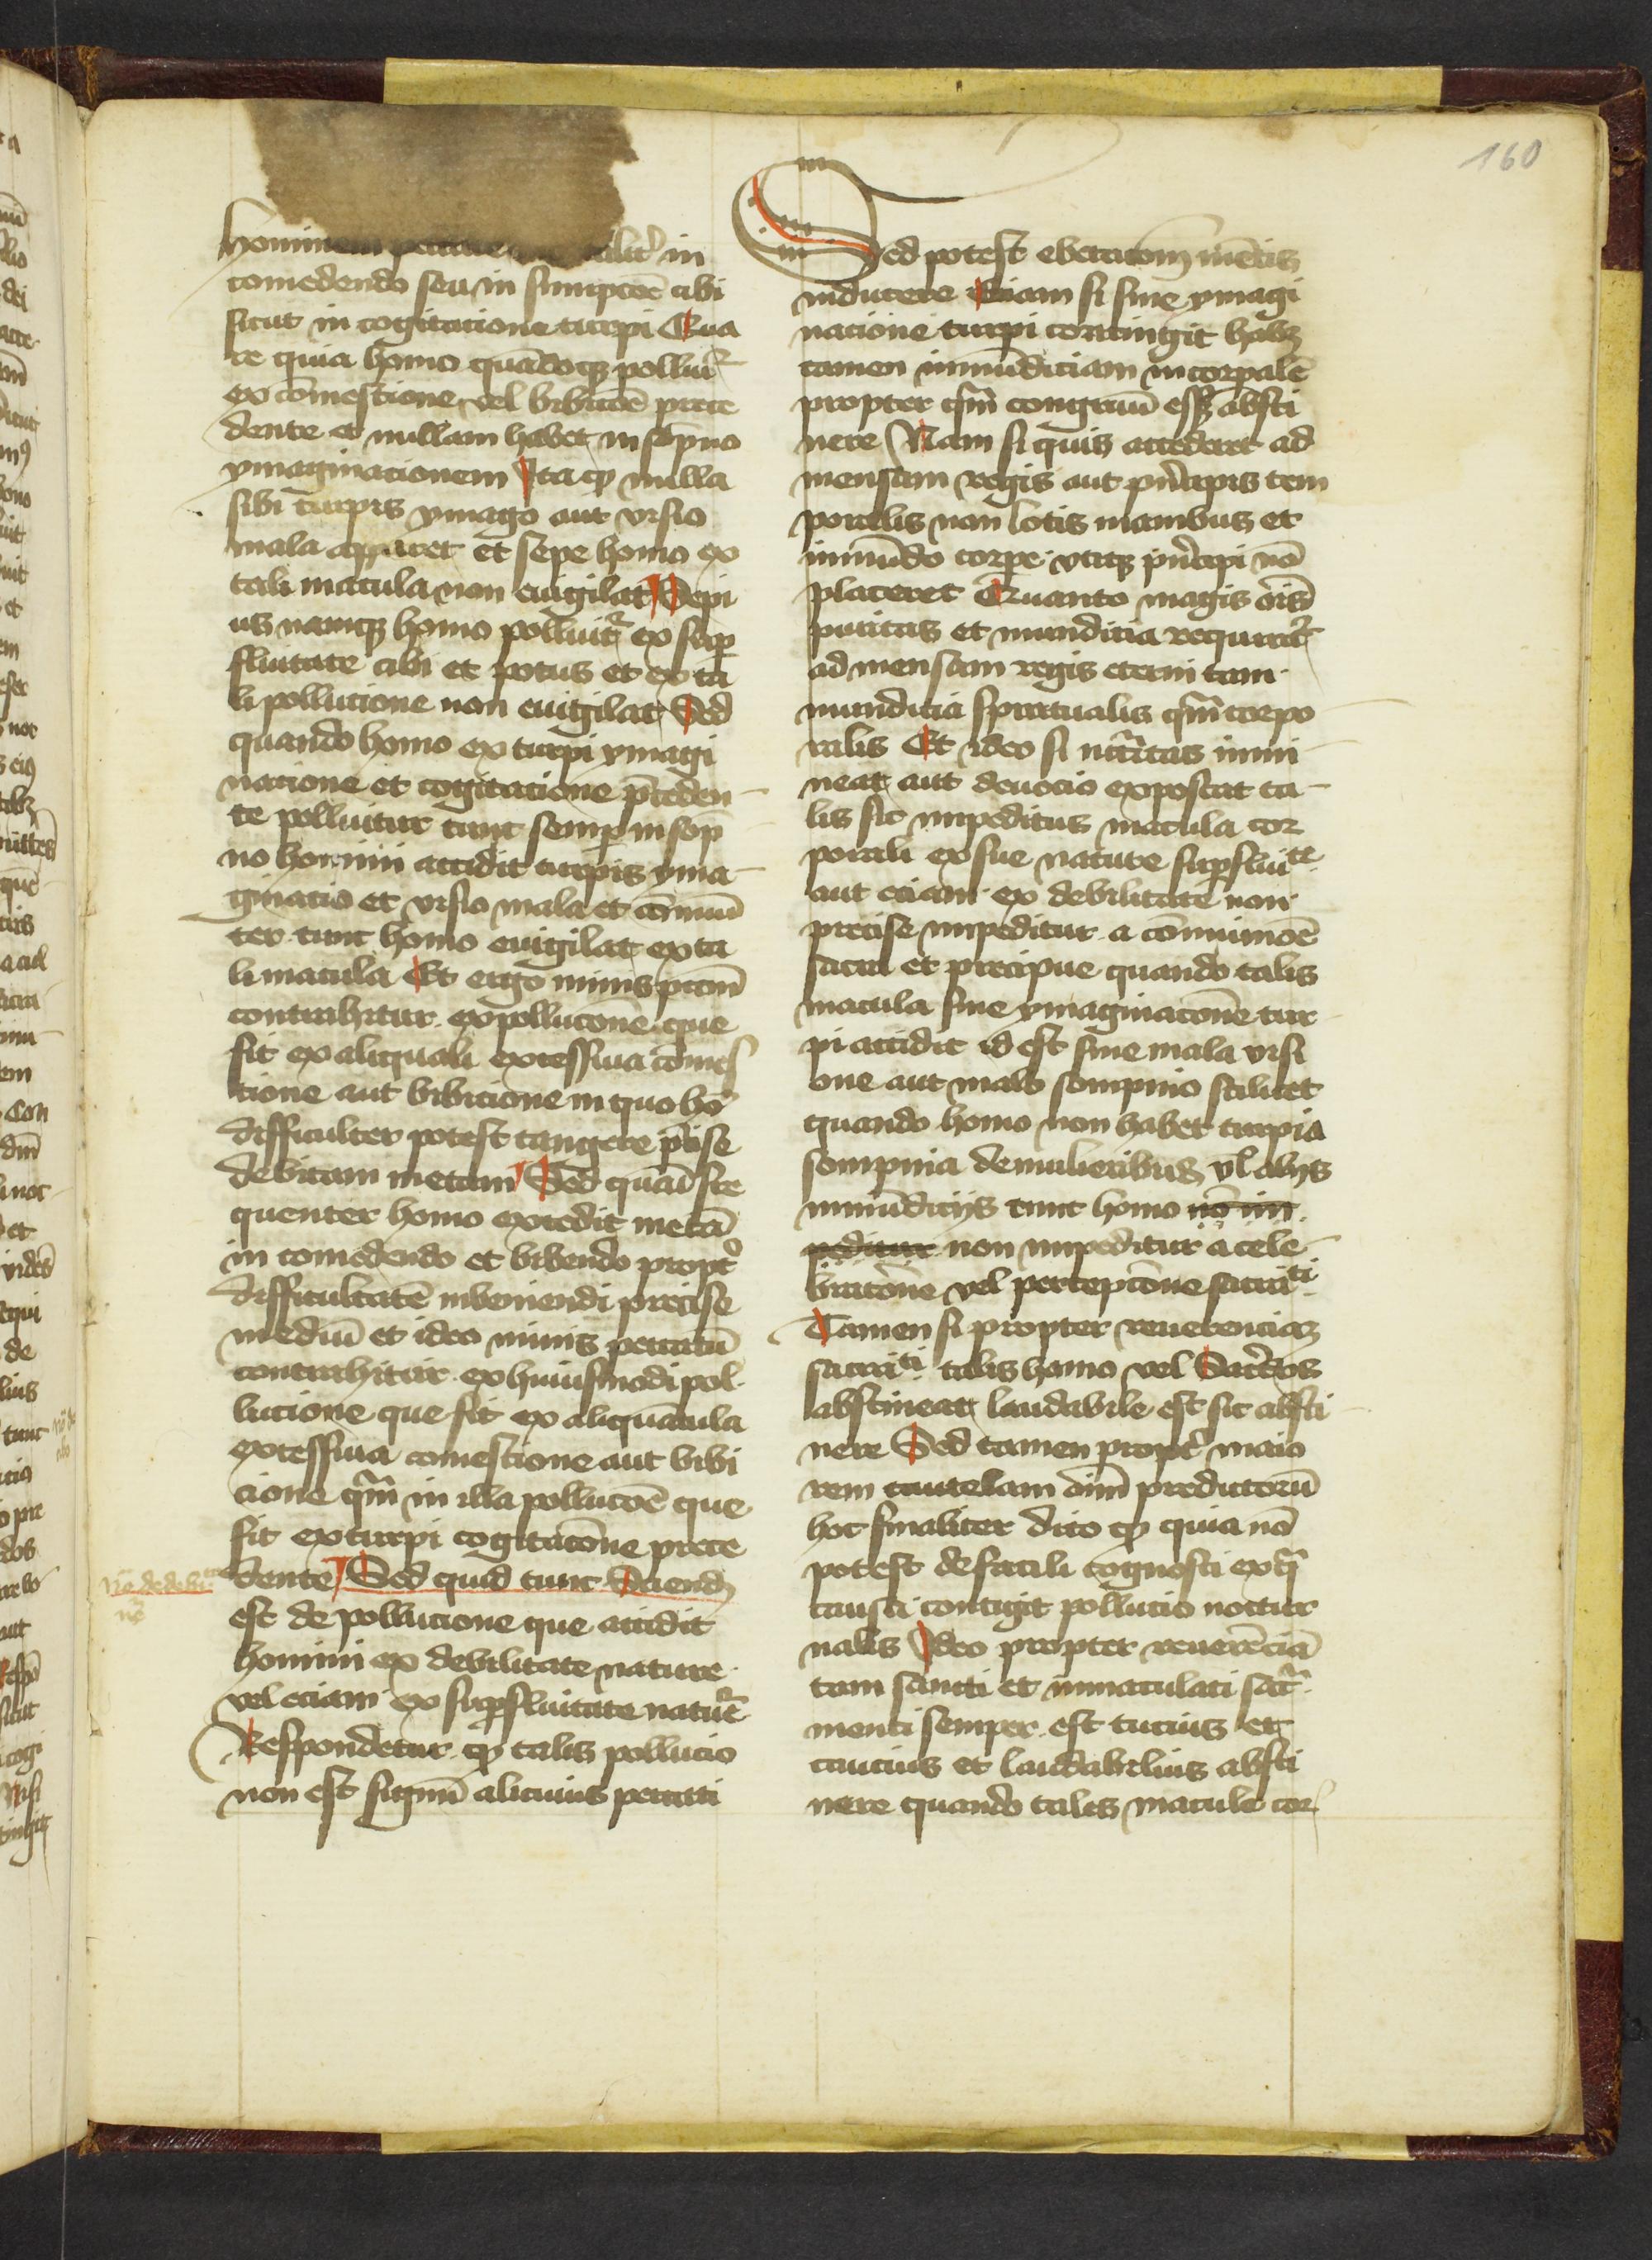 160
hominem peccare
in
comedendo seu in sumpcōe cibi
sicut in cogitacione turpi Qua
re quia homo quādoqꝫ polluit᷑
ex cōmestione vel bibicōe prece
dente et nullam habet in sōpno
ymaginacionem Ita ꝙ nulla
sibi turpis ymago aut visio
mala apparet et sepe homo ex
tali macula non euigilat Sepi
us namqꝫ homo polluit᷑ ex suꝑ
fluitate cibi et potus et ex ta
li pollucione non euigilat Sed
quando homo ex turpi ymagi
nacione et cogitacione p̄ceden
te polluitur tunc semꝑ in sop̄
no homini accidit turpis yma
ginacio et visio mala et cōmuni
ter tunc homo euigilat ex ta
li macula Et ergo minus pctm̄
contrahitur ex pollucōne que
fit ex aliquali excessiua comes
tione aut bibicione in quo hō
difficulter potest tangere p̄cise
debitam metam Sed quāū fre
quenter homo excedit metā
in comedendo et bibendo propt̾
difficultatē inveniendi precise
mediū et ideo minus peccatū
contrahitur ex huiusmodi pol
lucione que fit ex aliquātula
excessiua comestione aut bibi
cione qm̄ in illa pollucōe que
fit ex turpi cogitacōne prece
dente Sed quid tunc Sciendꝫ
est de pollucione que accidit
homini ex debilitate nature
vel eciam ex suꝑfluitate natur̄
Respondetur ꝙ talis pollucio
non est signū alicuius peccati
Sed potest ebetacōm̄ mētis
inducere Etiam si sine ymagi
nacione turpi contingit habꝫ
tamen inmūdiciam in corpalē
propter qm̄ congruū essꝫ absti
nere Nam si quis accederet ad
mensam regis aut prīcipis tem
poralis non lotis manibus et
inmūdo corpe vtiqꝫ prīcipi nō
placeret Quanto magis oīs
puritas et mundicia requirit᷑
ad mensam regis eterni tam
mundicia spiritualis qm̄ corpo
ralis Et ideo si nccītas immi
neat aut deuocio exposcat ta
lis sic impeditus macula cor
porali ex sue nature suꝑfluite
aut eciam ex debilitate non
precise impeditur a cōmunioē
sacra et precipue quando talis
macula sine ymaginacōne tur
pi accidit id est sine mala visi
one aut malo sompnio scilicet
quando homo non habet turpia
sompnia de mulieribus vl̄ alijs
inmūdicijs tunc homo nō im
peditur non impeditur a cele
bracōne vel percepcōne sacrati
Tamen si propter reuerenciaꝫ
sacrati talis homo vel Sacerdos
abstineat laudabile est sic absti
nere Sed tamen propt̾ maio
rem cautelam oīm predictorū
hoc finaliter dico ꝙ quia nō
potest de facili cognosci ex q̄
causa contigit pollucio noctur
nalis Ideo propter reuerēciā
tam sancti et inmaculati sac̄ra
menti semper est tucius et
caucius et laudabilius absti
nere quando talis macule cor